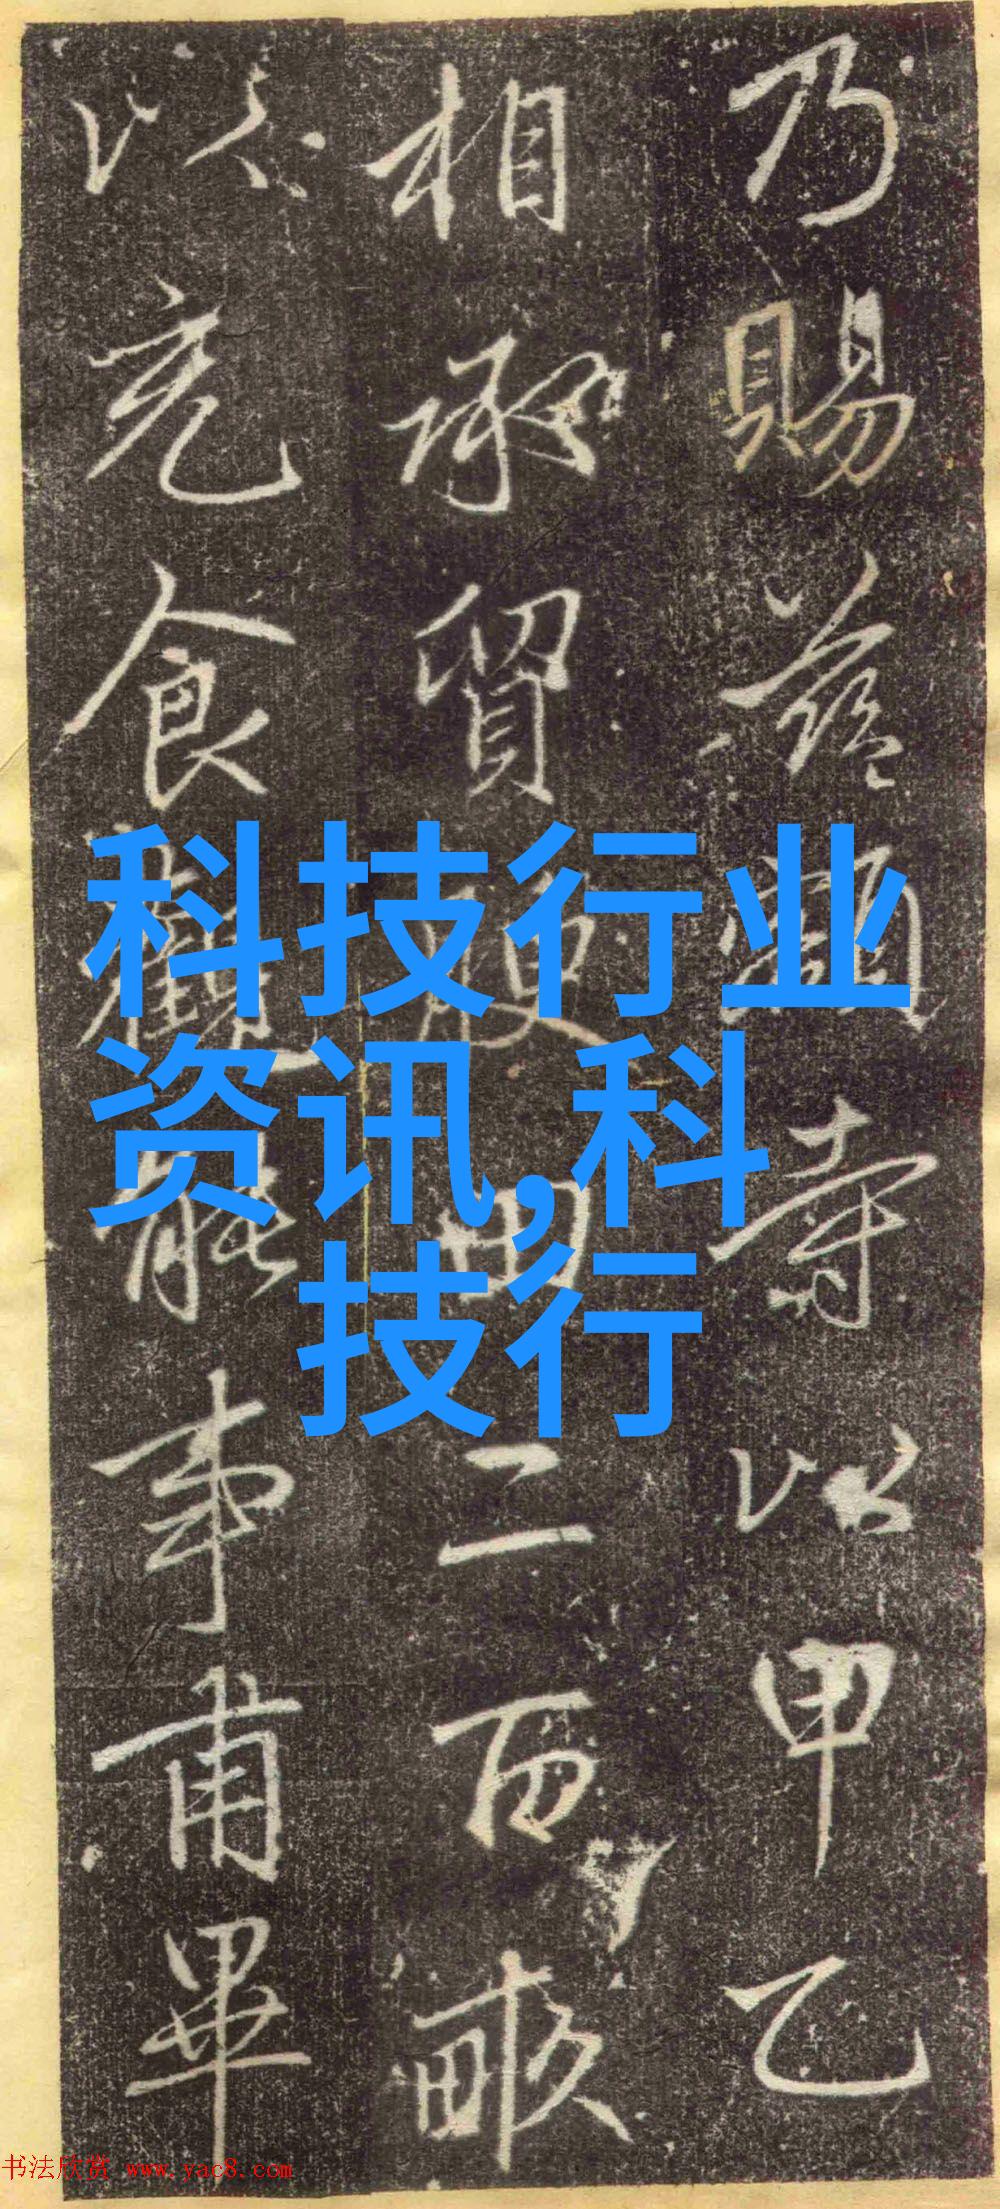 乃賜寺以甲乙
相承貿腴田二百畝
以充食觀能事甫畢
科技行业
资讯,科
技行
书法欣赏 www.yac8.com